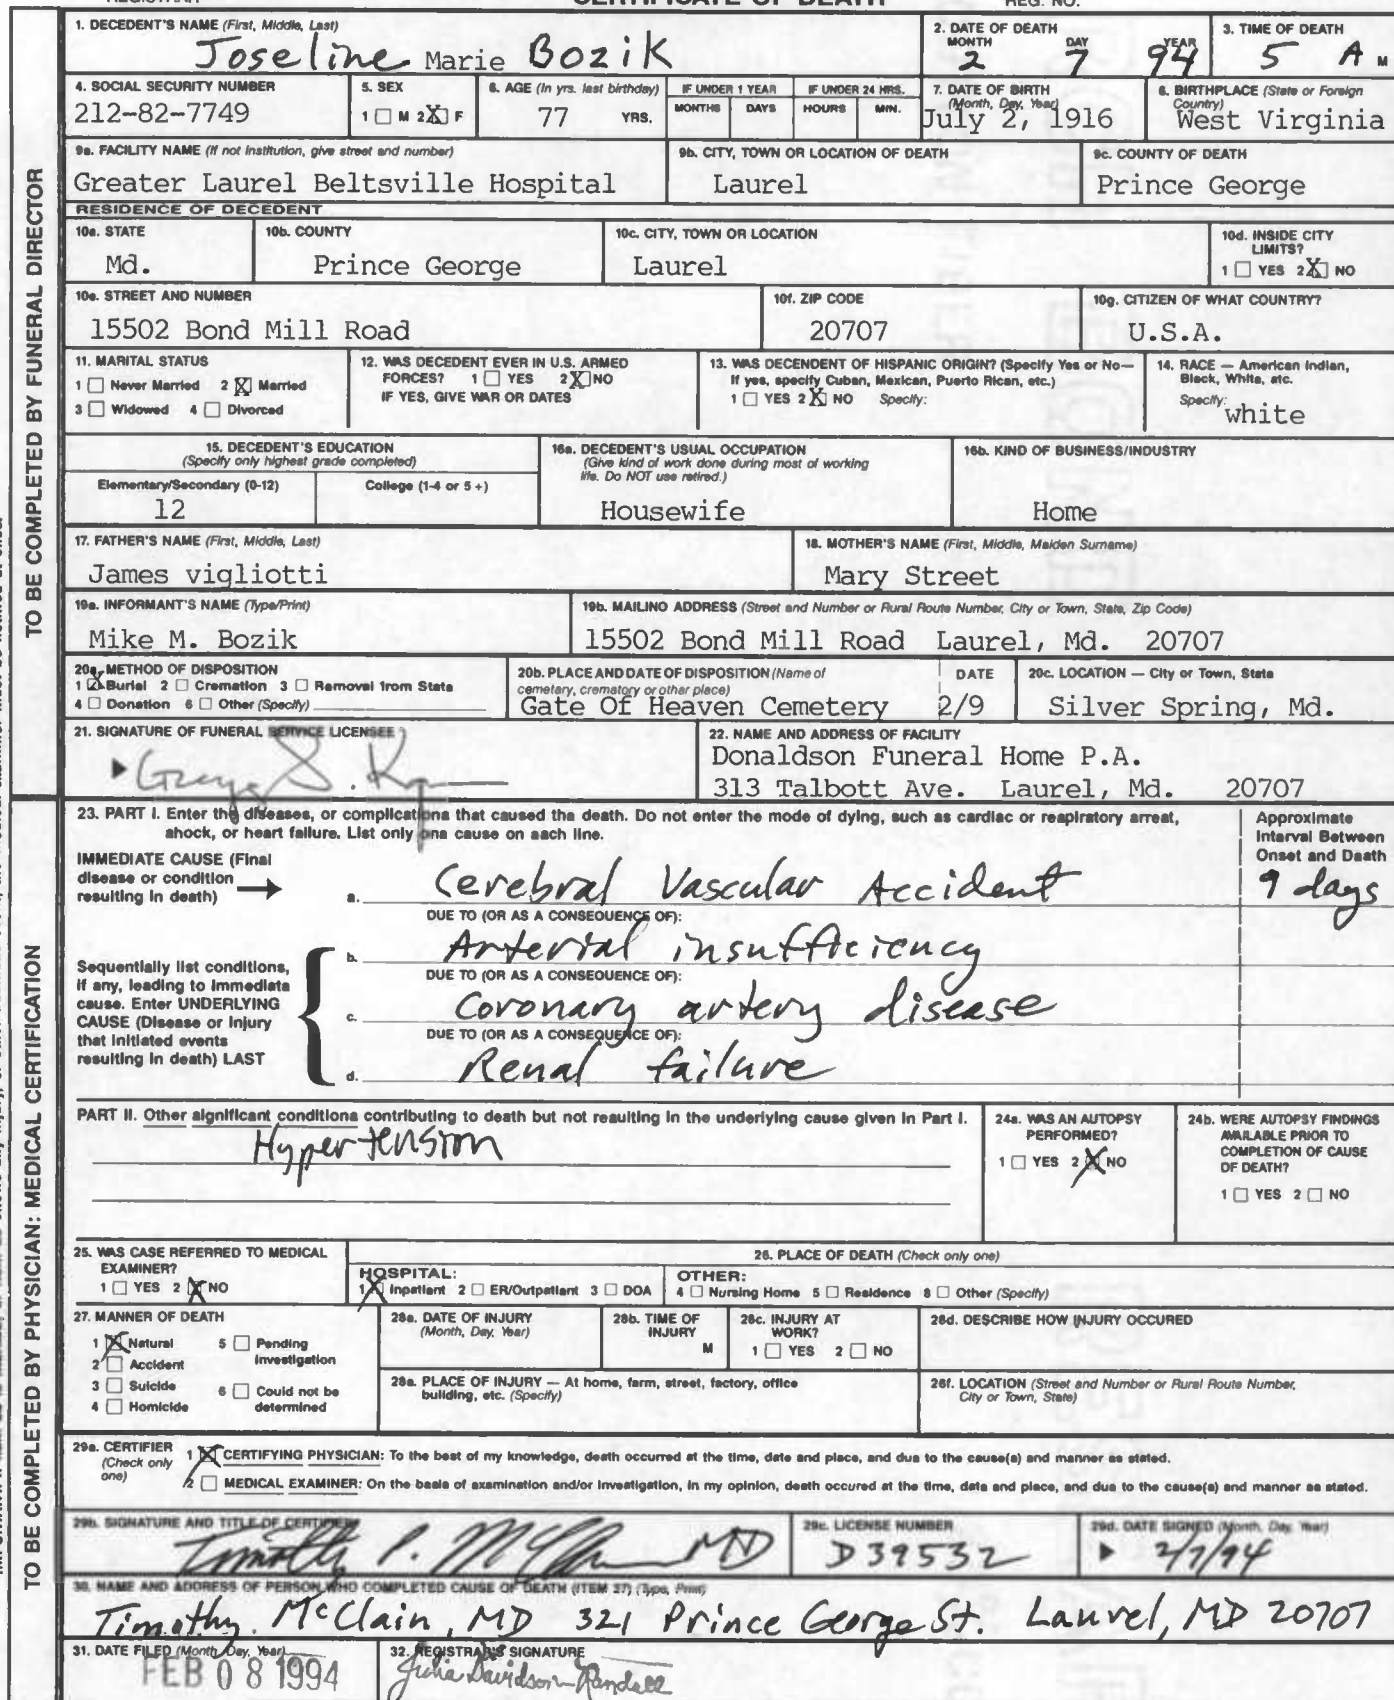 REGISTRAR CERTIFICATE OF DEATH REG. NO.
1. DECEDENT'S NAME (First, Middle, Last)
Joseline Marie Bozik
2. DATE OF DEATH
MONTH DAY YEAR
2 7 94
3. TIME OF DEATH
5 A M
4. SOCIAL SECURITY NUMBER
212-82-7749
5. SEX
1 ☐ M 2 ☒ F
6. AGE (In yrs. last birthday)
77 YRS.
IF UNDER 1 YEAR
MONTHS DAYS
IF UNDER 24 HRS.
HOURS MIN.
7. DATE OF BIRTH
(Month, Day, Year)
July 2, 1916
8. BIRTHPLACE (State or Foreign
Country)
West Virginia
9a. FACILITY NAME (If not institution, give street and number)
Greater Laurel Beltsville Hospital
9b. CITY, TOWN OR LOCATION OF DEATH
Laurel
9c. COUNTY OF DEATH
Prince George
RESIDENCE OF DECEDENT
10a. STATE
Md.
10b. COUNTY
Prince George
10c. CITY, TOWN OR LOCATION
Laurel
10d. INSIDE CITY
LIMITS?
1 ☐ YES 2 ☒ NO
10e. STREET AND NUMBER
15502 Bond Mill Road
10f. ZIP CODE
20707
10g. CITIZEN OF WHAT COUNTRY?
U.S.A.
11. MARITAL STATUS
1 ☐ Never Married 2 ☒ Married
3 ☐ Widowed 4 ☐ Divorced
12. WAS DECEDENT EVER IN U.S. ARMED
FORCES? 1 ☐ YES 2 ☒ NO
IF YES, GIVE WAR OR DATES
13. WAS DECENDENT OF HISPANIC ORIGIN? (Specify Yes or No—
If yes, specify Cuban, Mexican, Puerto Rican, etc.)
1 ☐ YES 2 ☒ NO Specify:
14. RACE — American Indian,
Black, White, etc.
Specify:
white
15. DECEDENT'S EDUCATION
(Specify only highest grade completed)
Elementary/Secondary (0-12) College (1-4 or 5 +)
12
16a. DECEDENT'S USUAL OCCUPATION
(Give kind of work done during most of working
life. Do NOT use retired.)
Housewife
16b. KIND OF BUSINESS/INDUSTRY
Home
17. FATHER'S NAME (First, Middle, Last)
James vigliotti
18. MOTHER'S NAME (First, Middle, Maiden Surname)
Mary Street
19a. INFORMANT'S NAME (Type/Print)
Mike M. Bozik
19b. MAILING ADDRESS (Street and Number or Rural Route Number, City or Town, State, Zip Code)
15502 Bond Mill Road Laurel, Md. 20707
20a. METHOD OF DISPOSITION
1 ☒ Burial 2 ☐ Cremation 3 ☐ Removal from State
4 ☐ Donation 6 ☐ Other (Specify)
20b. PLACE AND DATE OF DISPOSITION (Name of
cemetary, crematory or other place)
Gate Of Heaven Cemetery
DATE
2/9
20c. LOCATION — City or Town, State
Silver Spring, Md.
21. SIGNATURE OF FUNERAL SERVICE LICENSEE
22. NAME AND ADDRESS OF FACILITY
Donaldson Funeral Home P.A.
313 Talbott Ave. Laurel, Md. 20707
TO BE COMPLETED BY FUNERAL DIRECTOR
23. PART I. Enter the diseases, or complications that caused the death. Do not enter the mode of dying, such as cardiac or respiratory arrest,
shock, or heart failure. List only one cause on each line.
Approximate
Interval Between
Onset and Death
IMMEDIATE CAUSE (Final
disease or condition
resulting in death) →
a. Cerebral Vascular Accident
9 days
DUE TO (OR AS A CONSEQUENCE OF):
b. Arterial insufficiency
DUE TO (OR AS A CONSEQUENCE OF):
c. Coronary artery disease
DUE TO (OR AS A CONSEQUENCE OF):
d. Renal failure
Sequentially list conditions,
if any, leading to immediate
cause. Enter UNDERLYING
CAUSE (Disease or injury
that initiated events
resulting in death) LAST
PART II. Other significant conditions contributing to death but not resulting in the underlying cause given in Part I.
Hypertension
24a. WAS AN AUTOPSY
PERFORMED?
1 ☐ YES 2 ☒ NO
24b. WERE AUTOPSY FINDINGS
AVAILABLE PRIOR TO
COMPLETION OF CAUSE
OF DEATH?
1 ☐ YES 2 ☐ NO
25. WAS CASE REFERRED TO MEDICAL
EXAMINER?
1 ☐ YES 2 ☒ NO
26. PLACE OF DEATH (Check only one)
HOSPITAL:
1 ☒ Inpatient 2 ☐ ER/Outpatient 3 ☐ DOA
OTHER:
4 ☐ Nursing Home 5 ☐ Residence 8 ☐ Other (Specify)
27. MANNER OF DEATH
1 ☒ Natural 5 ☐ Pending
investigation
2 ☐ Accident
3 ☐ Suicide 6 ☐ Could not be
4 ☐ Homicide determined
28a. DATE OF INJURY
(Month, Day, Year)
28b. TIME OF
INJURY
M
28c. INJURY AT
WORK?
1 ☐ YES 2 ☐ NO
28d. DESCRIBE HOW INJURY OCCURED
28e. PLACE OF INJURY — At home, farm, street, factory, office
building, etc. (Specify)
28f. LOCATION (Street and Number or Rural Route Number,
City or Town, State)
29a. CERTIFIER
(Check only
one)
1 ☒ CERTIFYING PHYSICIAN: To the best of my knowledge, death occurred at the time, date and place, and due to the cause(s) and manner as stated.
2 ☐ MEDICAL EXAMINER: On the basis of examination and/or investigation, in my opinion, death occured at the time, date and place, and due to the cause(s) and manner as stated.
29b. SIGNATURE AND TITLE OF CERTIFIER
Timothy P. McClain MD
29c. LICENSE NUMBER
D39532
29d. DATE SIGNED (Month, Day, Year)
2/7/94
30. NAME AND ADDRESS OF PERSON WHO COMPLETED CAUSE OF DEATH (ITEM 27) (Type, Print)
Timothy McClain, MD 321 Prince George St. Laurel, MD 20707
31. DATE FILED (Month, Day, Year)
FEB 08 1994
32. REGISTRAR'S SIGNATURE
Julia Davidson-Randall
TO BE COMPLETED BY PHYSICIAN: MEDICAL CERTIFICATION